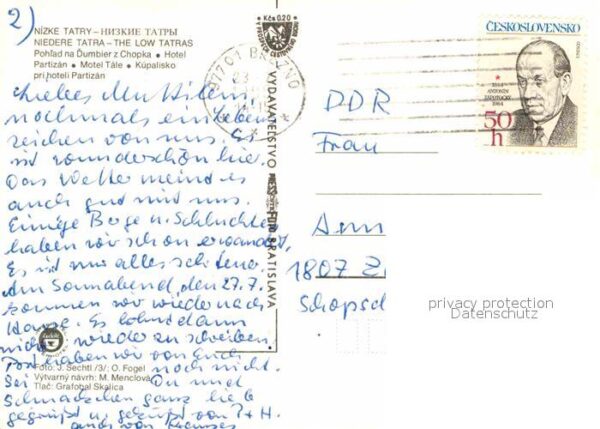 2)
NÍZKE TATRY – НИЗКИЕ ТАТРЫ
NIEDERE TATRA – THE LOW TATRAS
Pohľad na Ďumbier z Chopka • Hotel
Partizán • Motel Tále • Kúpalisko
pri hoteli Partizán
Liebes
nochmals ein Lebens
zeichen von uns. Es
ist wunderschön hier.
Das Wetter meint es
auch gut mit uns.
Einige Berge u. Schluchten
haben wir schon erwandert.
Es ist nur alles
Am Sonnabend, den 27.7.
kommen wir wieder nach
Hause. Es lohnt dann
nicht wieder zu schreiben.
Post haben wir von Euch
noch nicht.
Sei Du und
Schnäckchen ganz lieb
gegrüßt u. geküßt von P + H.
auch von
Foto: J. Sechtl /3/; O. Fogel
Výtvarný návrh: M. Menclová
Tlač: Grafobal Skalica
Kčs 0,20
VYDAVATEĽSTVO
FÜR BRATISLAVA
977 01 BREZNO
ČESKOSLOVENSKO
1884
ANTONÍN
ZÁPOTOCKÝ
1984
50
h
DDR
Frau
Ann
1807 Z
Schopsd
privacy protection
Datenschutz